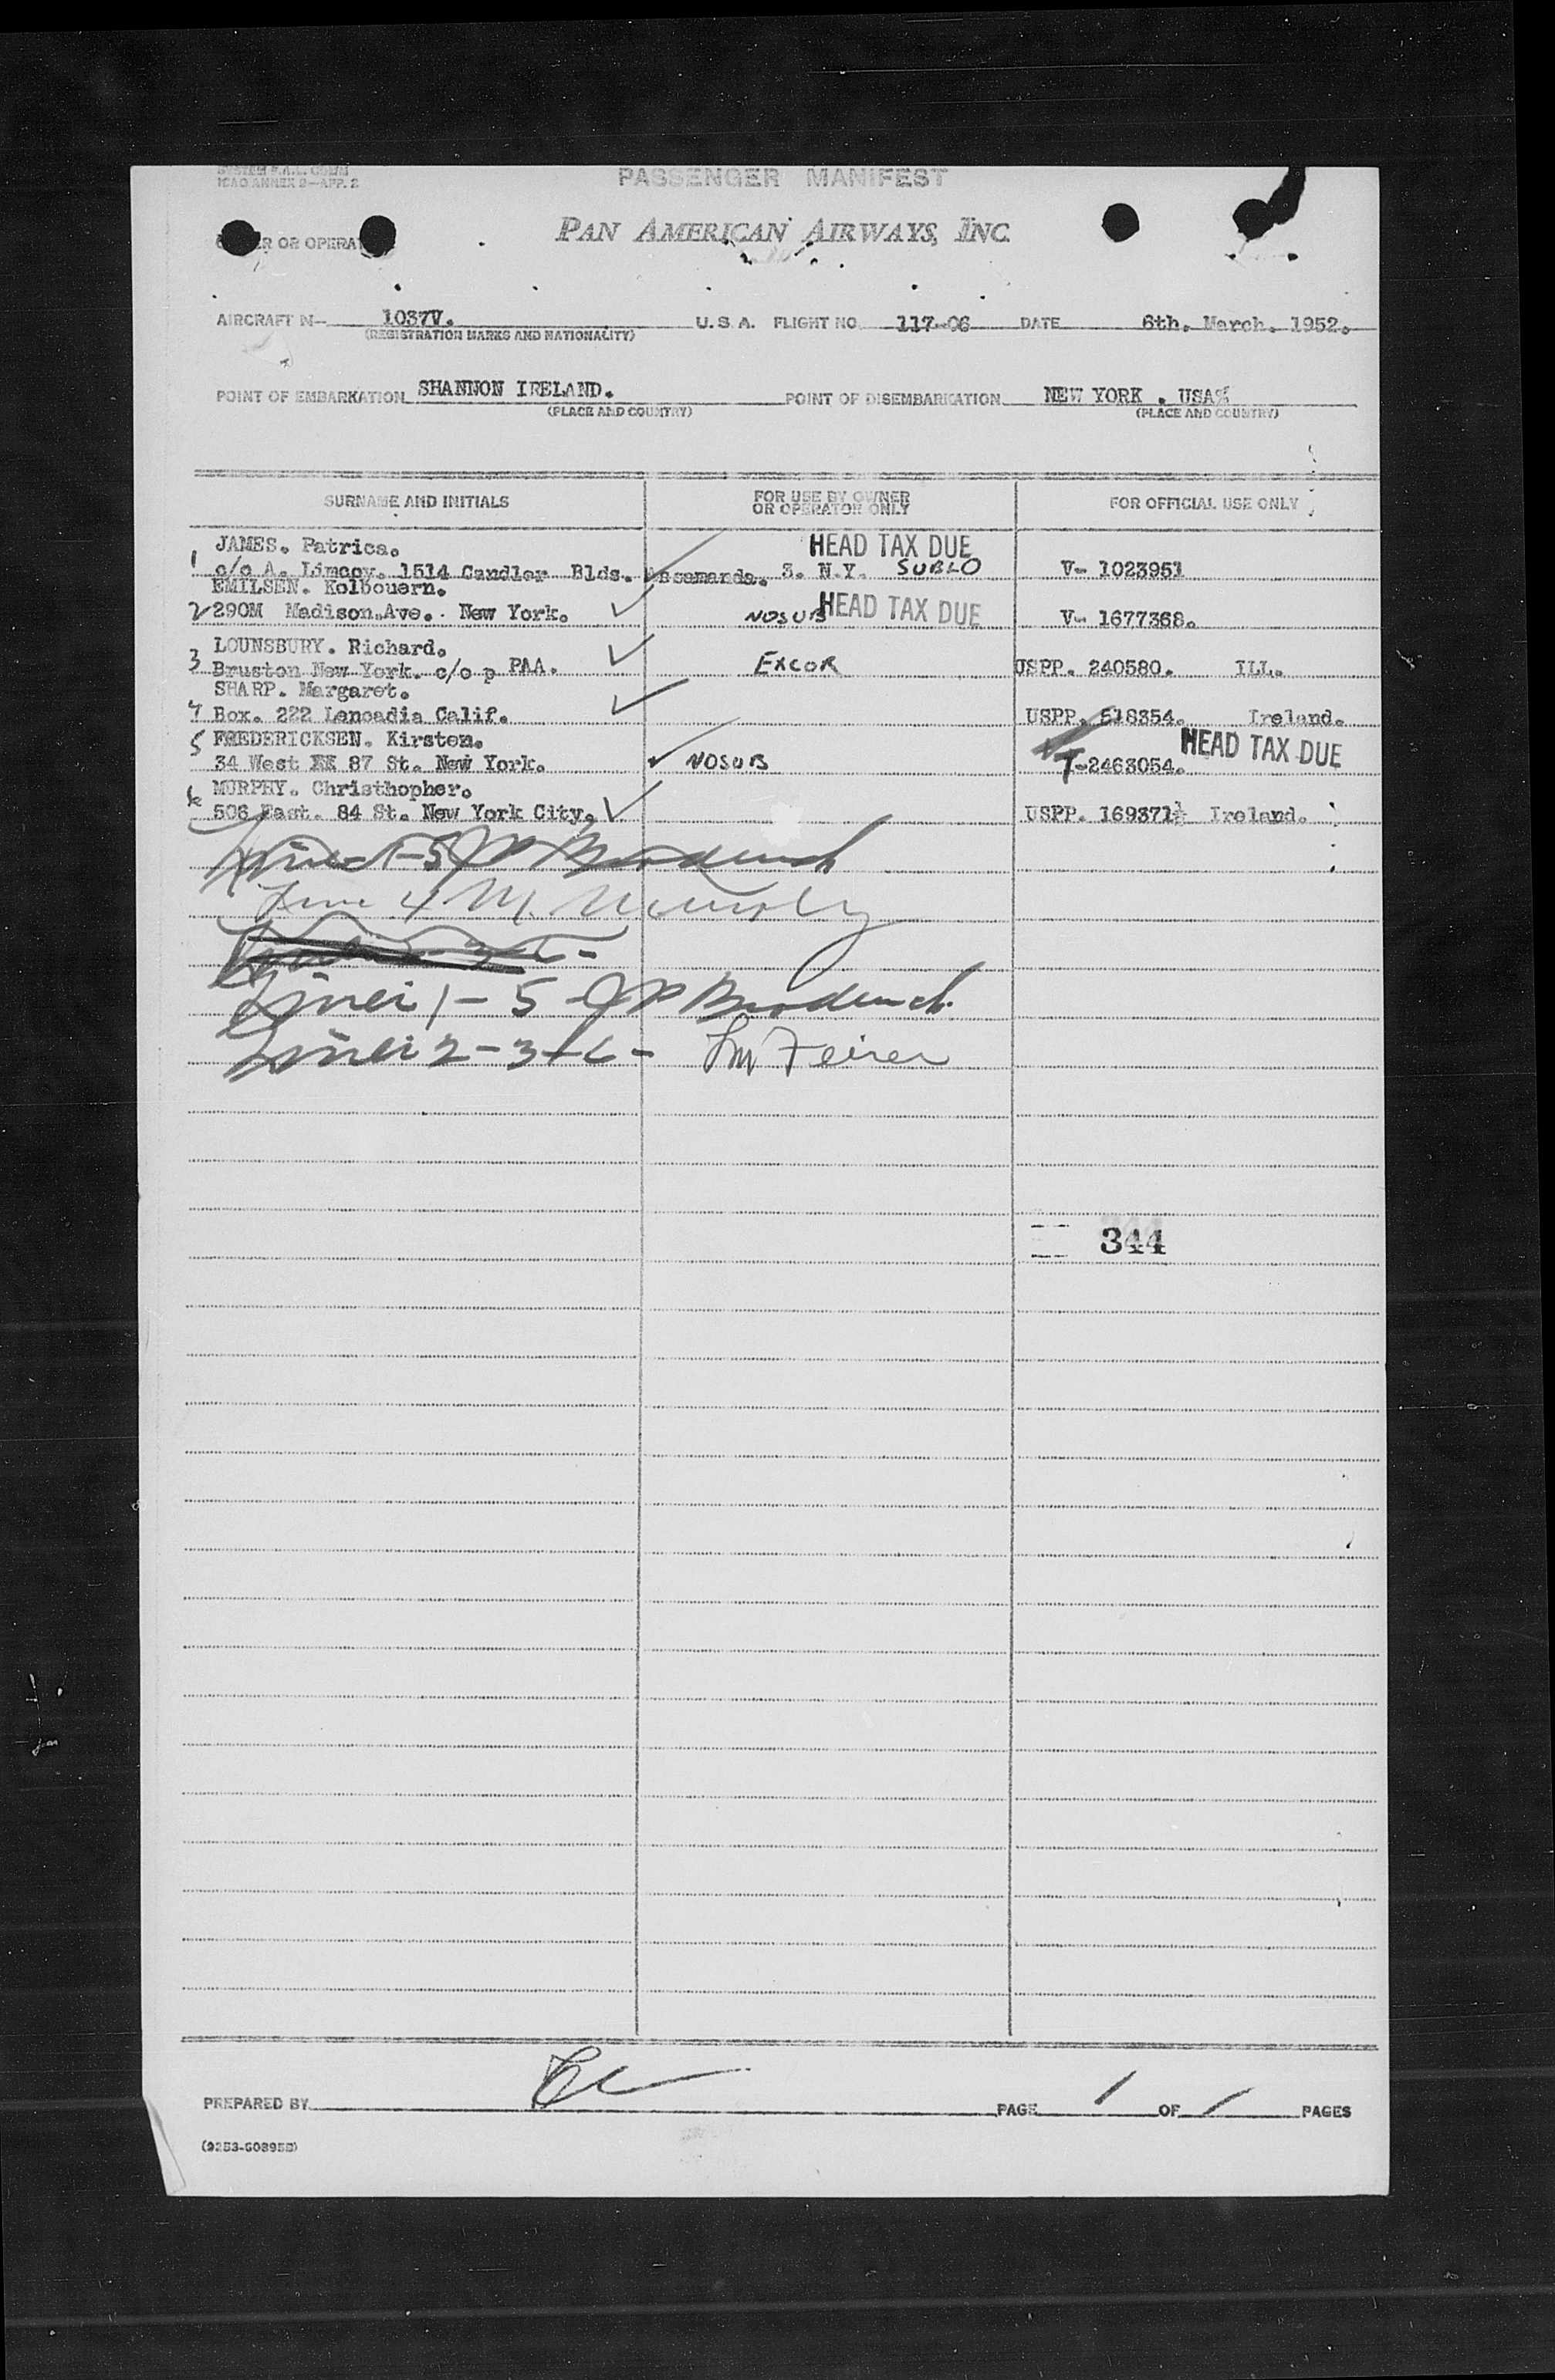 SYSTEM F.A.L. COMM
ICAO ANNEX 9—APP. 2
PASSENGER MANIFEST
OR OPERAT
PAN AMERICAN AIRWAYS, INC.
AIRCRAFT N— 1037V. U. S. A. FLIGHT NO 117-06 DATE 6th. March. 1952.
(REGISTRATION MARKS AND NATIONALITY)
POINT OF EMBARKATION SHANNON IRELAND. POINT OF DISEMBARKATION NEW YORK . USA
(PLACE AND COUNTRY) (PLACE AND COUNTRY)
SURNAME AND INITIALS FOR USE BY OWNER OR OPERATOR ONLY FOR OFFICIAL USE ONLY
JAMES. Patrica. HEAD TAX DUE
1 c/o A. 1514 Candler Blds. 3. N.Y. SUBLO V- 1023951
EMILSEN. Kolbouern.
2 290M Madison.Ave. New York. NOSUB HEAD TAX DUE V- 1677368.
LOUNSBURY. Richard.
3 Bruston New York. c/o p PAA. EXCOR USPP. 240580. ILL.
SHARP. Margaret.
4 Box. 222 Lencadia Calif. USPP. 518354. Ireland.
5 FREDERICKSEN. Kirsten. HEAD TAX DUE
34 West 87 St. New York. NOSUB T-2463054.
6 MURPHY. Christhopher.
506 East. 84 St. New York City. USPP. 169371 Ireland.
Line 4 M.
Lines 1-5
Lines 2-3-6-
344
PREPARED BY PAGE 1 OF 1 PAGES